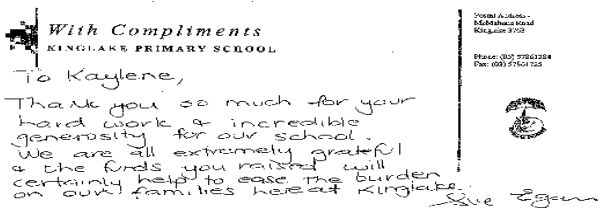 With Compliments
KINGLAKE PRIMARY SCHOOL
Postal Address -
McMahons Road
Kinglake 3763
Phone: (03) 57861284
Fax: (03) 57861725
To Kaylene,
Thank you so much for your
hard work & incredible
generosity for our school.
We are all extremely grateful
& the funds you raised will
certainly help to ease the burden
on our families here at Kinglake.
Sue Egan